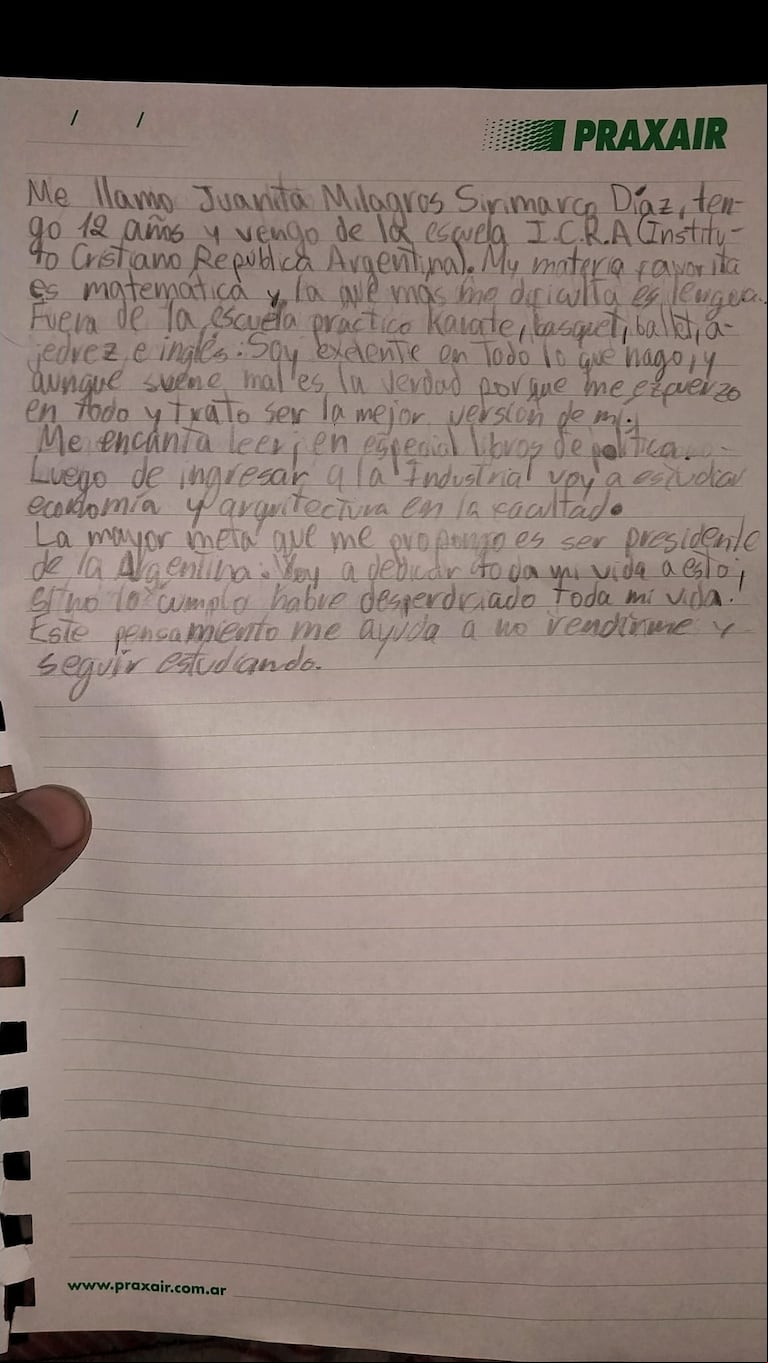 / /
PRAXAIR
Me llamo Juanita Milagros Sirimarco Díaz, ten-
go 12 años y vengo de la escuela I.C.R.A (Institu-
to Cristiano República Argentina). My materia favorita
es matematica y la que más me dificulta es lengua.
Fuera de la escuela practico Karate, basquet, ballet, a-
jedrez e inglés. Soy exelente en todo lo que hago, y
aunque suene mal es la verdad porque me ezfuerzo
en todo y trato ser la mejor versión de mi.
Me encanta leer, en especial libros de politica.
Luego de ingresar a la Industrial voy a estudiar
economía y arquitectura en la facultad.
La mayor meta que me propongo es ser presidente
de la Argentina. Voy a dedicar toda mi vida a esto,
si no lo cumplo habre desperdriciado toda mi vida.
Este pensamiento me ayuda a no rendirme y
seguir estudiando.
www.praxair.com.ar